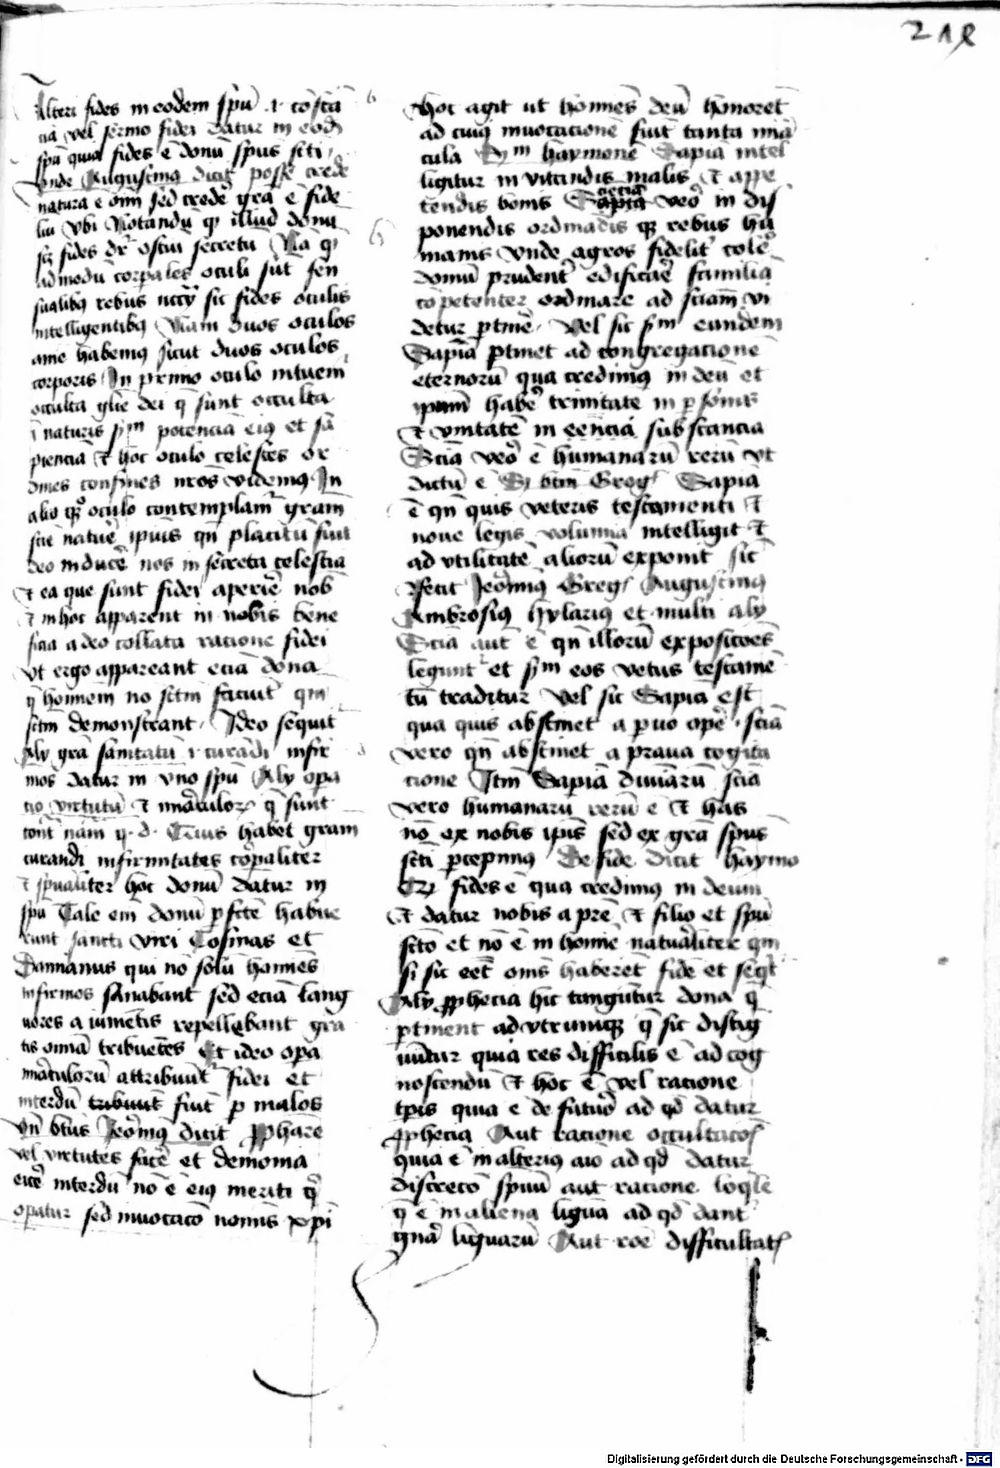 218
Alteri fides in eodem spū .i. cōstā
cia vel sermo fidei datur in eodē
spū quia fides ē donū spūs scti
vnde Augustinus dicit posse crede
natura ē oīm sed credē grā ē fide
liū vbi Notandū qͥ illud donū
scꝫ fides dr̄ ostiū secretū Na qͥ
admodū corpales oculi sūt sen
sualibꝫ rebus nccīj sic fides oculis
intelligentibꝫ Nam duos oculos
aīe habemꝰ sicut duos oculos
corporis In primo oculo intuemͬ
occulta glīe dei q̄ sunt occulta
ī naturis sꝫm potencia eiꝰ et sa
pienciā ⁊ hoc oculo celestes or
dines confines nr̄os videmꝰ In
alio qꝫ oculo contemplamͬ grām
scīe natuē ipīus qn̄ placitū fuit
deo inducē nos in secreta celestia
⁊ ea que sunt fidei aperiē nob
⁊ in hoc apparent in nobis bene
ficia a deo collata racione fidei
vt ergo appareant eciā dona
q̄ hominem no sctm faciūt qm̄
sctm demonstrant Ideo sequitͬ
Alij grā sanitatū .i. curādi infir
mos datur in vno spū Alij opa
cio virtutū ⁊ mīaculoꝝ q̄ sunt
cont̄ nām q. d. Cuius habet grām
curandi infirmitates cōrpaliter
⁊ spūaliter hoc donū datur in
spū Tale em donū pfctē habue
runt sancti viri Cosmas et
Damianus qui nō solū homīes
infirmos sanabant sed eciā lang
uores a iumētis repellebant gra
tis omīa tribuētes Et ideo opa
mīaculorū attribuūtͬ fidei et
interdū tribuūt fiūt p malos
vn̄ btūs Jeoīmꝰ dicit ꝓphare
vel virtutes facē et demonia
eicē interdū nō ē eiꝰ meriti qͥ
opatur sed inuocacō nomīs xpī
hoc agit ut homīes deū honoretͬ
ad cuiꝰ inuocacionē fiūt tanta mīa
cula Sꝫm haymonē Sapīa intel
ligitur in vitandis malis ⁊ appe
tendis bonis Sapīa sciēcia veō in dis
ponendis ordinādis qꝫ rebus hu
manis vnde agros fidelitͬ colē
domū prudentͬ edificāē familiā
cōpetenter ordinare ad sciam vi
detur ptinē Vel sic sꝫm eundem
Sapīa ptinet ad congregacionē
eternorū qua credimꝰ in deū et
ipsum habē trinitatē in psonis
⁊ vnitatē in eēnciā substancia
Scīa veō ē humanarū rerū vt
dictū ē Sꝫ btm̄ Greg Sapīa
ē qn̄ quis veteris testamenti ⁊
noue legis volumīa intelligit ⁊
ad vtilitatē aliorū exponit sic
fecit Jeoīmꝰ Greg Augustinꝰ
Ambrosiꝰ hylariꝰ et multi alij
Scīa aut ē qn̄ illorū exposicōēs
leguntͬ et sꝫm eos vetus testamē
tū traditur Vel sic Sapīa est
qua quis abstinet a p̄uo opē scīa
vero qn̄ abstinet a praua cogita
cione Itm Sapīa diuīarū scīa
vero humanarū rerū ē ⁊ has
nō ex nobis ipīs sed ex grā spūs
scti pcepimꝰ De fide dicit haymo
Qꝫ fides ē qua credimꝰ in deum
⁊ datur nobis a pr̄e ⁊ filio et spū
scto et nō ē in homīē natuāliter qm̄
si sic eēt oms haberēt fidē et seqͬt
Alij ꝓphecia hic tangūtur dona q̄
ptinent ad vtrumqꝫ q̄ sic distig
uūtur quia res difficilis ē ad cog
noscendū ⁊ hoc ē vel racione
tpīs quia ē de futuō ad qd̄ datur
ꝓphecia Aut racione occultacōīs
quia ē in alteriꝰ aīo ad qd̄ datur
discrecō spūū aut racione loqle
q̄ ē in aliena ligua ad qd̄ dantͬ
gnā liguarū Aut rōe difficultatꝭ
Digitalisierung gefördert durch die Deutsche Forschungsgemeinschaft - DFG